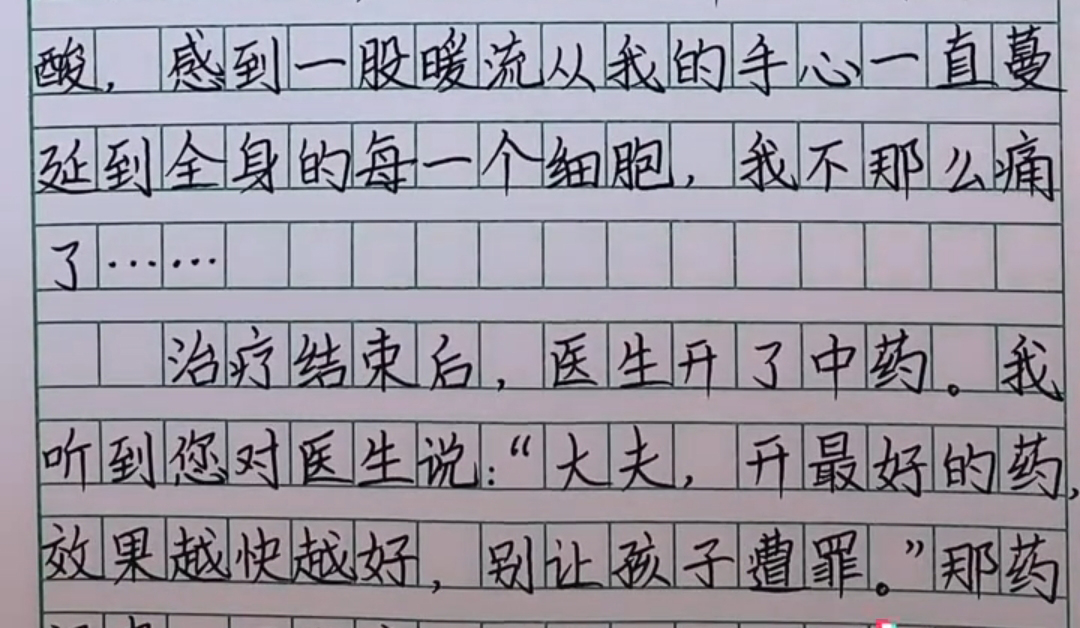 酸，感到一股暖流从我的手心一直蔓
延到全身的每一个细胞，我不那么痛
了……
治疗结束后，医生开了中药。我
听到您对医生说：“大夫，开最好的药，
效果越快越好，别让孩子遭罪。”那药